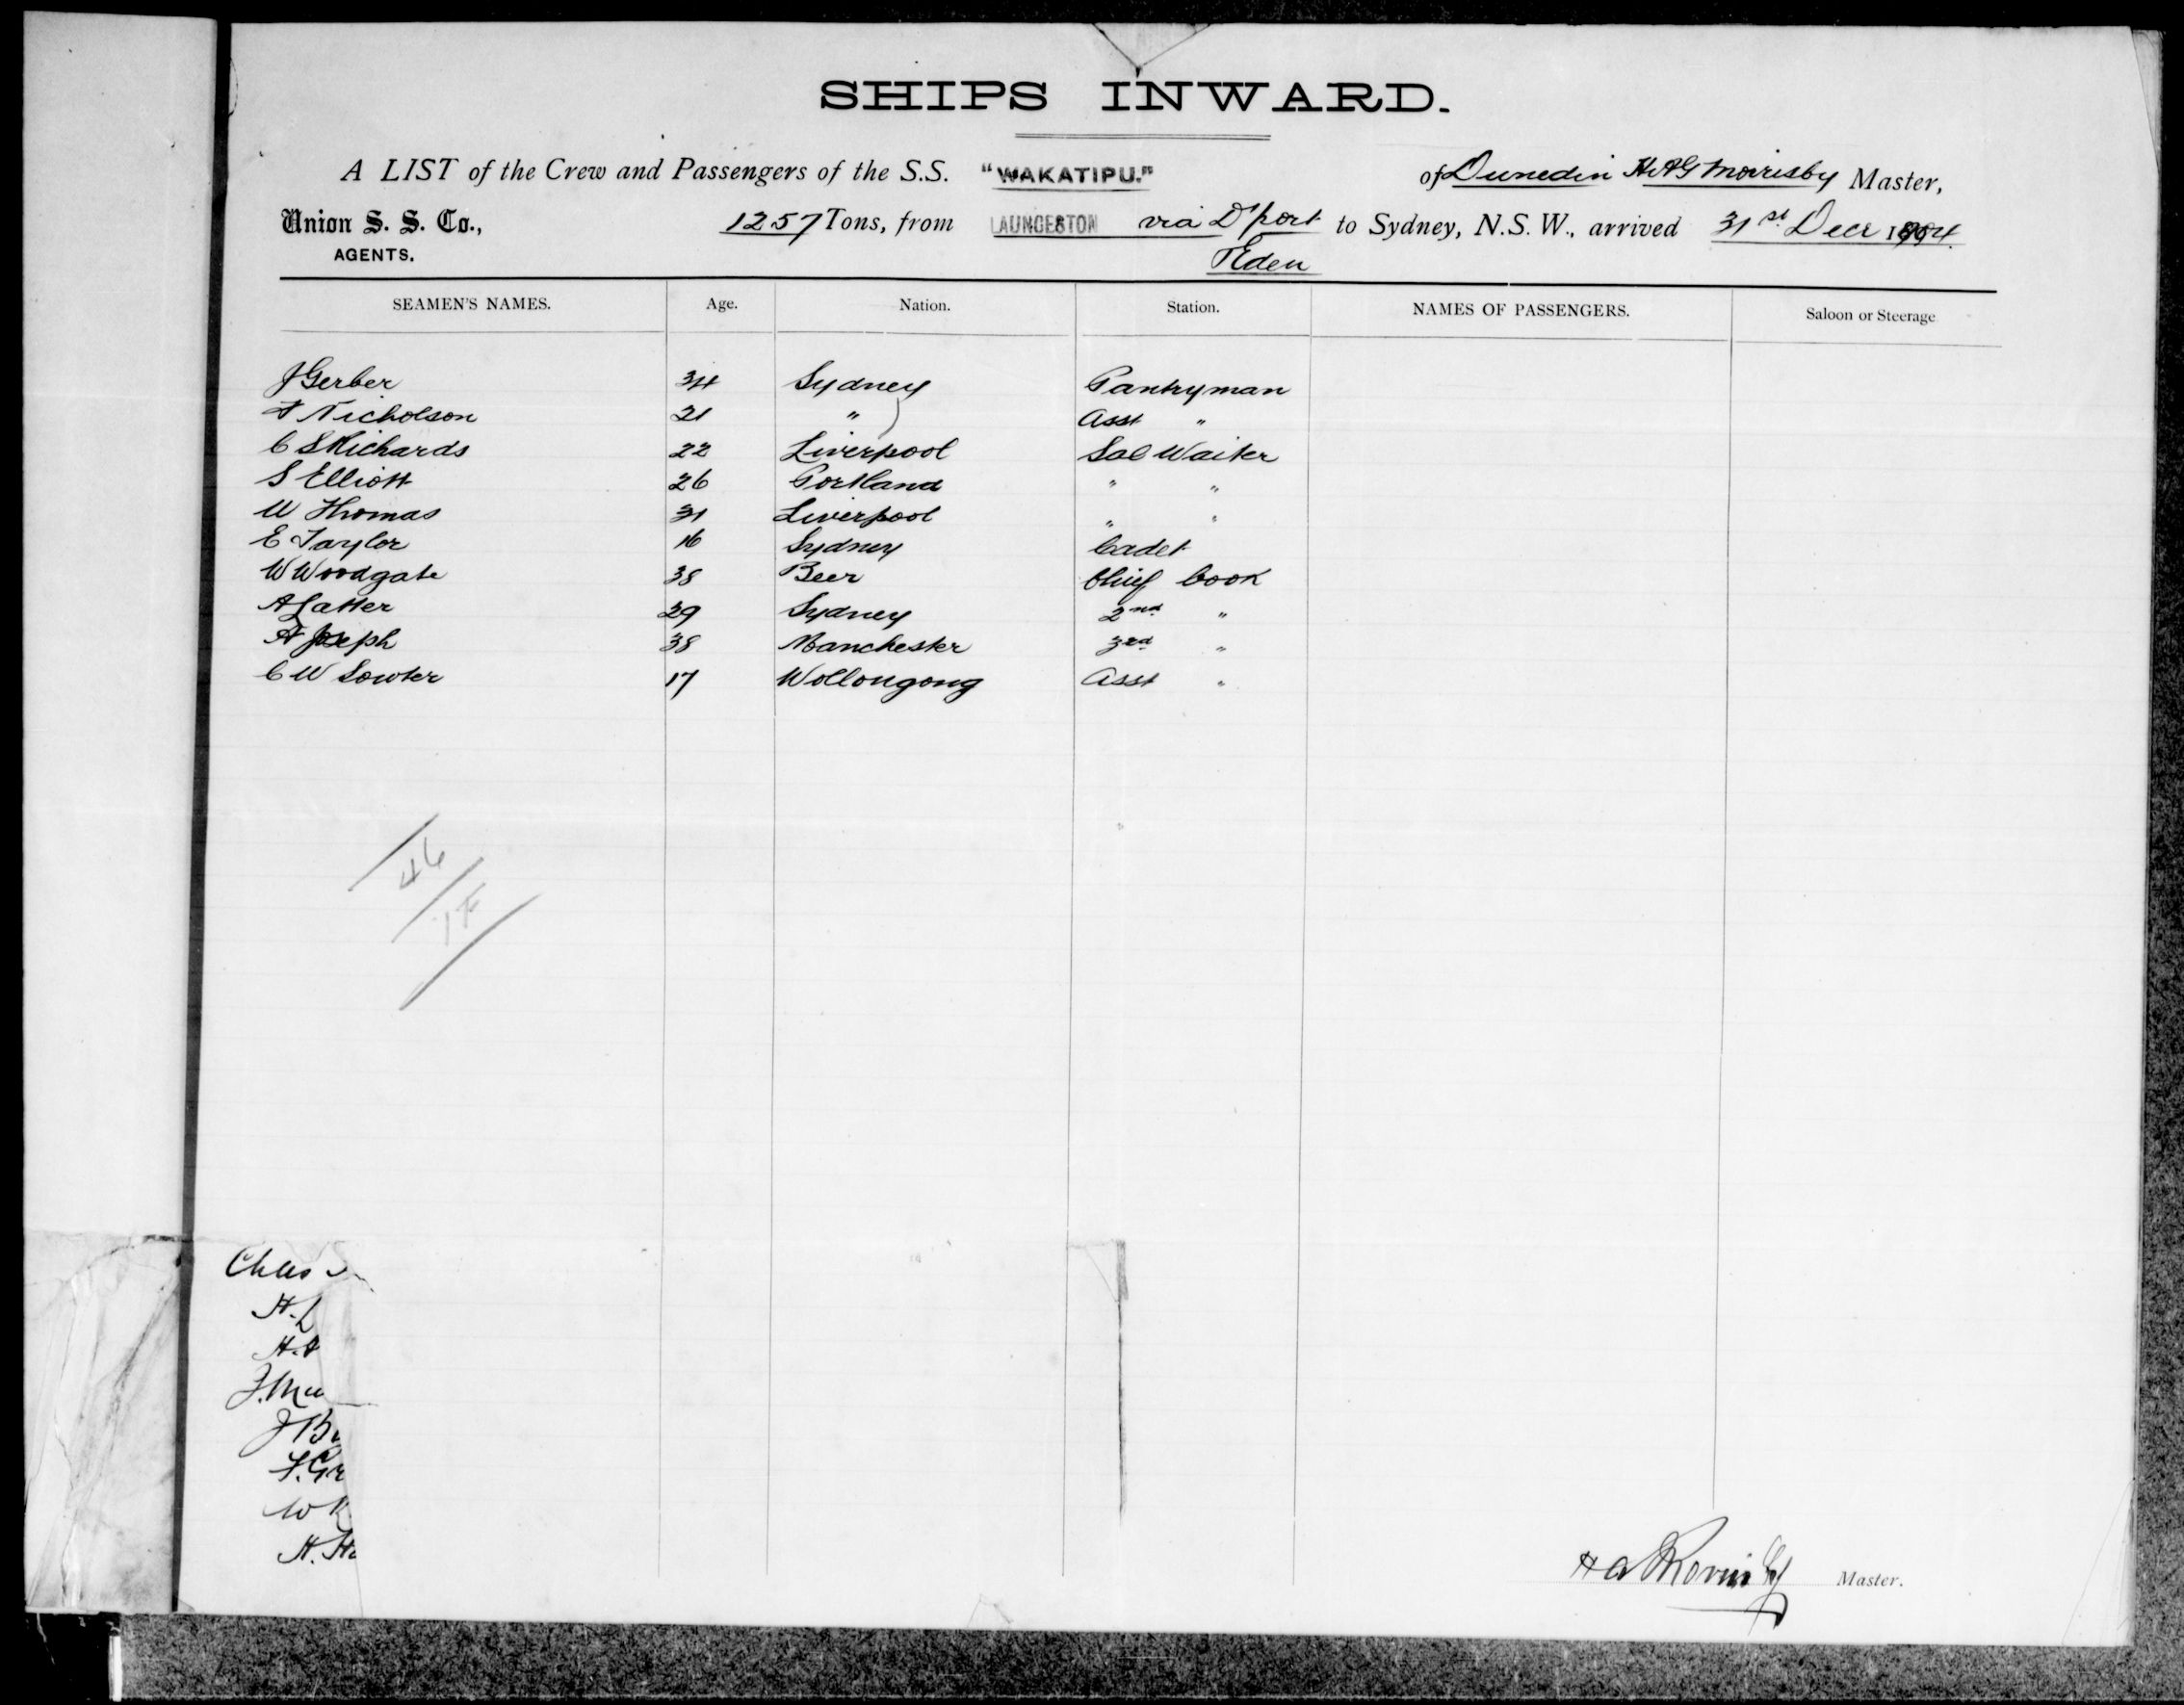 SHIPS INWARD.
A LIST of the Crew and Passengers of the S.S. "WAKATIPU." of Dunedin H A G Morrisby Master,
Union S. S. Co., 1257 Tons, from LAUNCESTON via D'port to Sydney, N.S.W., arrived 31st Decr 1904.
AGENTS. Eden
SEAMEN'S NAMES. Age. Nation. Station. NAMES OF PASSENGERS. Saloon or Steerage
J Gerber 34 Sydney Pantryman
F Nicholson 21 " Asst "
C S Richards 22 Liverpool Sal Waiter
S Elliott 26 Portland " "
W Thomas 31 Liverpool " "
E Taylor 16 Sydney Cadet
W Woodgate 38 Beer Chief Cook
A Latter 29 Sydney 2nd "
A Joseph 38 Manchester 3rd "
C W Sowter 17 Wollongong Asst "
46
Chas
H. L
H. A
J. Mu
J B
F. Gr
W
H. Ha
H A Morrisby Master.